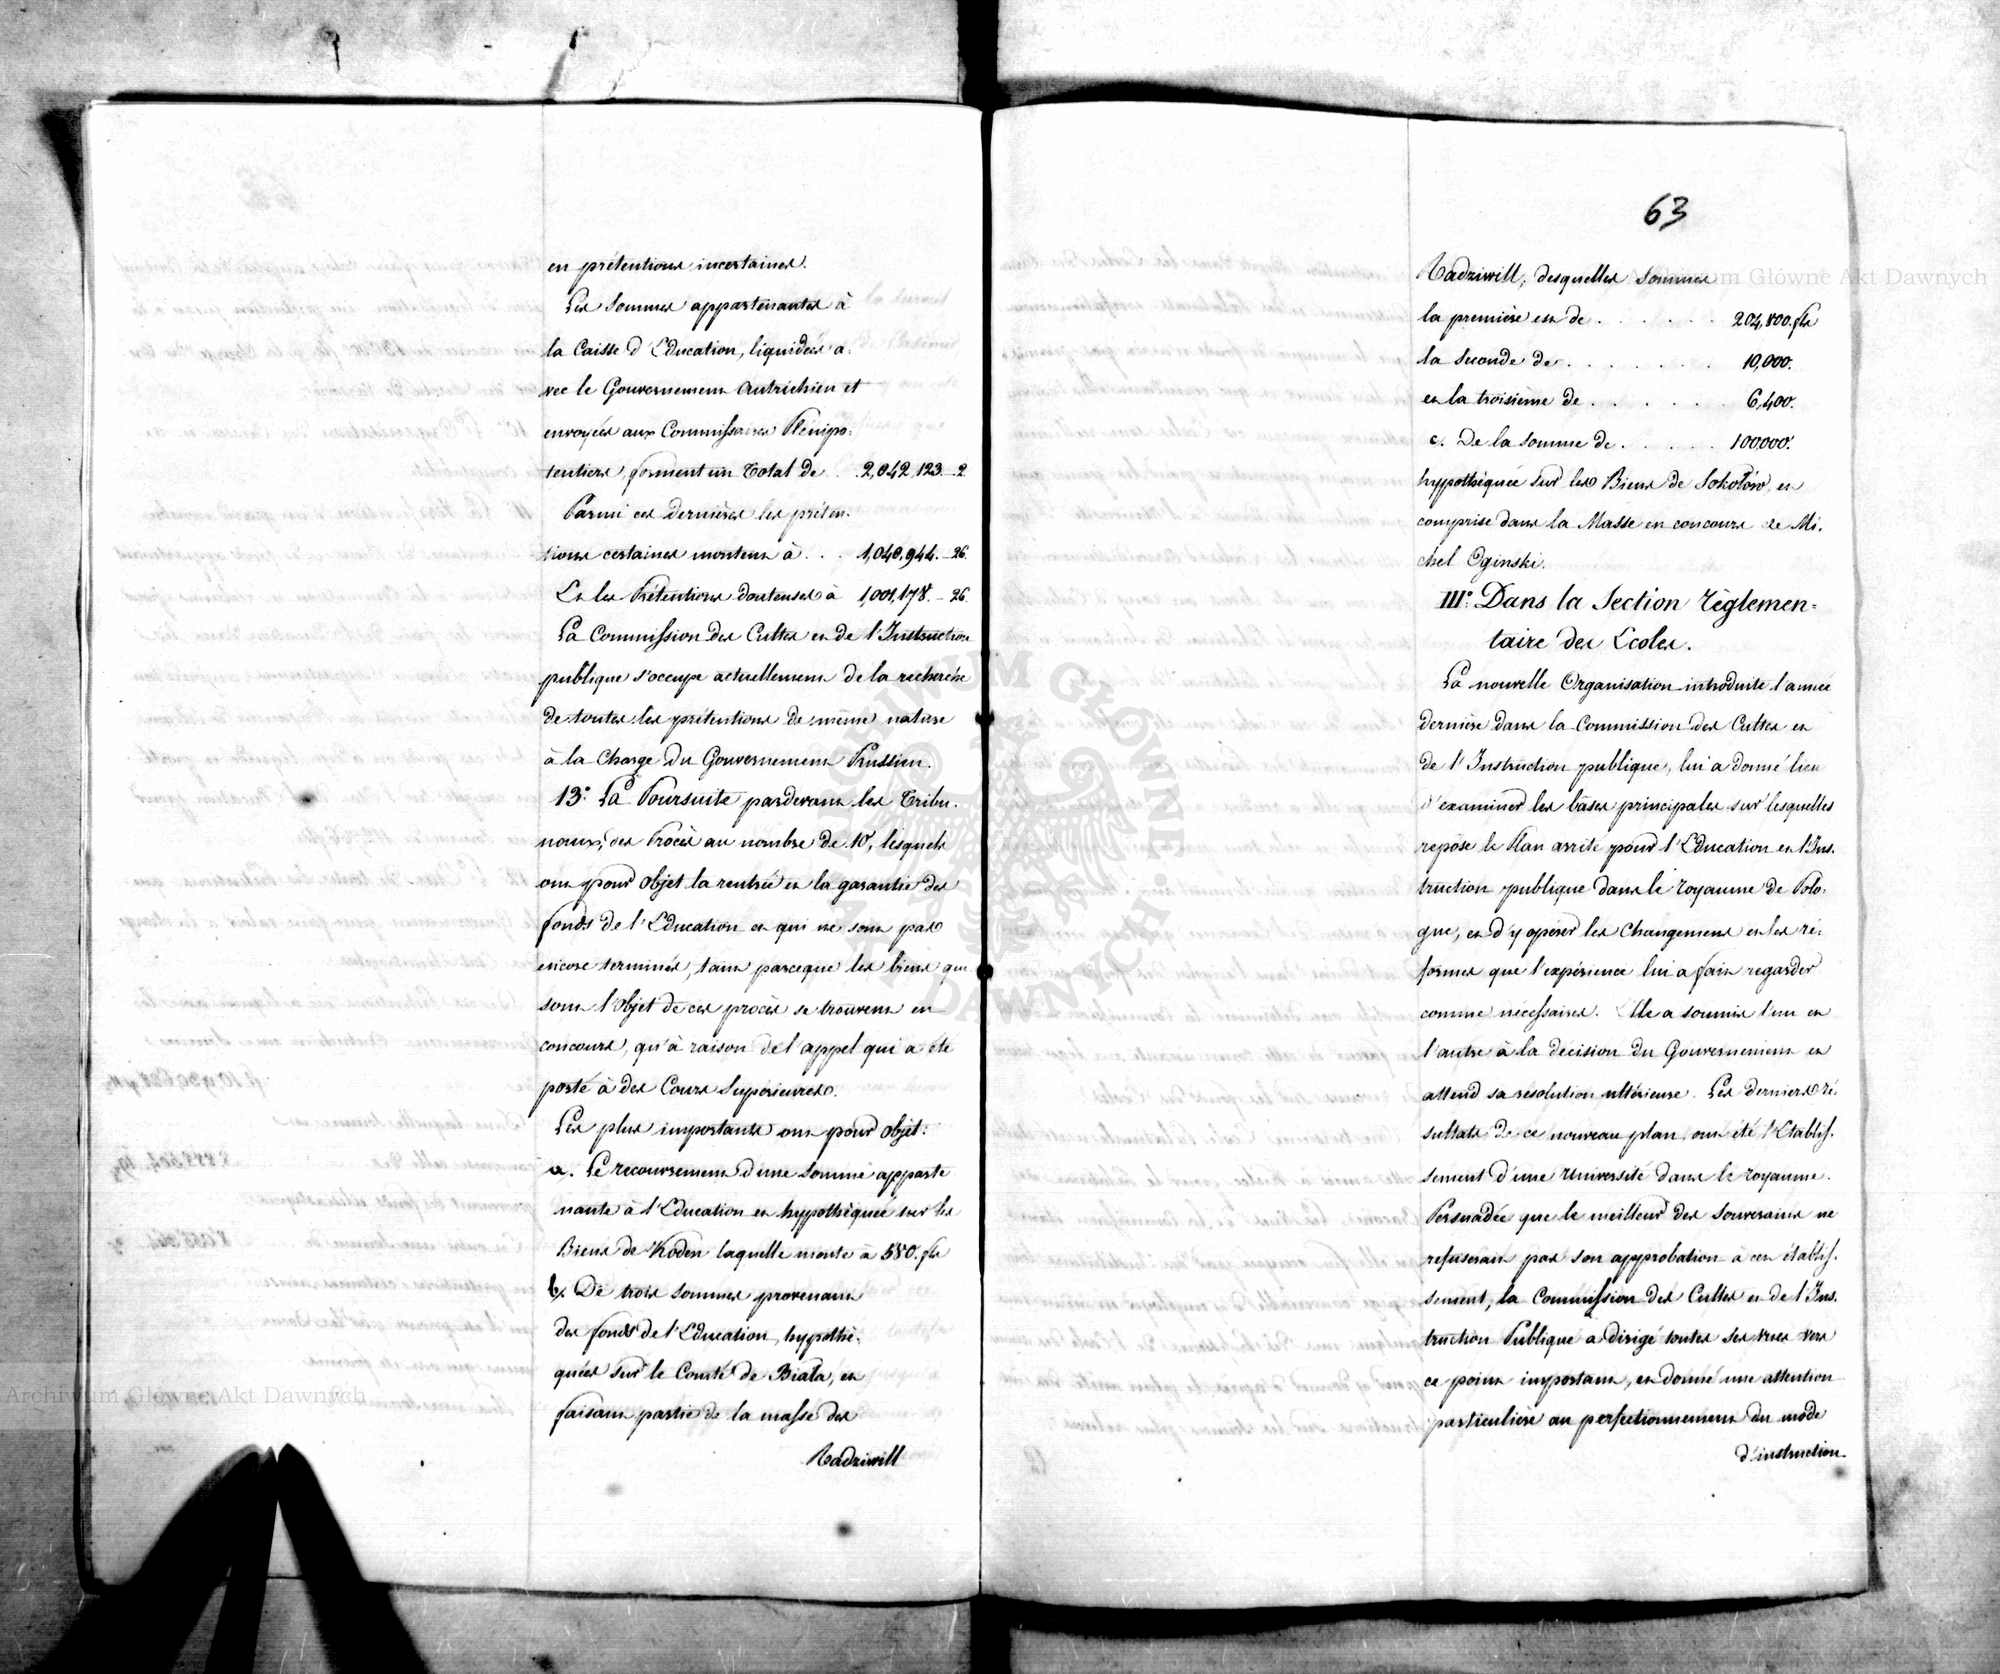 en prétentions incertaines.
Les sommes appartenantes à
la Caisse d'Education, liquidées a-
vec le Gouvernement Autrichien et
envoyées aux Commissaires Plenipo-
tentiers, forment un Total de . 2,042,123.-2
Parmi ces dernières les préten-
tions certaines montent à . . . 1,040,944.-26.
Et les Prétentions douteuses à 1,001,178.-26.
La Commission des Cultes et de l'Instruction
publique s'occupe actuellement de la recherche
de toutes les prétentions de même nature
à la Charge du Gouvernement Prussien.
13° La Poursuite pardevant les Tribu-
naux, des Procès au nombre de 10, lesquels
ont pour Objet la rentrée et la garantie des
fonds de l'Education et qui ne sont pas
encore terminés, tant parceque les biens qui
sont l'Objet de ces procès se trouvent en
concours, qu'à raison de l'appel qui a été
porté à des Cours Superieures.
Les plus importants ont pour Objet:
a. Le recouvrement d'une somme apparte
nante à l'Education et hypothéquée sur les
Biens de Koden laquelle monte à 580. fls
b. De trois sommes provenant
des fonds de l'Education, hypothé-
quées sur le Comté de Biala, et
faisant partie de la masse des
Radziwill
63
Radziwill, desquelles sommes
la première est de . . . . . . 204,800. fls
la seconde de . . . . . . . 10,000.
et la troisième de . . . . . . 6,400.
c. De la somme de . . . . . 100000.
hypothéquée sur les Biens de Sokołów, et
comprise dans la Masse en concours de Mi-
chel Oginski.
III° Dans la Section Règlemen-
taire des Ecoles.
La nouvelle Organisation introduite l'année
dernière dans la Commission des Cultes et
de l'Instruction publique, lui a donné lieu
d'examiner les bases principales sur lesquelles
repose le Plan arrêté pour l'Education et l'Ins-
truction publique dans le Royaume de Polo-
gne, et d'y opérer les Changemens et les ré-
formes que l'expérience lui a fait regarder
comme nécessaires. Elle a soumis l'un et
l'autre à la decision du Gouvernement et
attend sa resolution ultérieure. Les derniers ré-
sultats de ce nouveau plan, ont été l'Etablis-
sement d'une Université dans le Royaume.
Persuadée que le meilleur des Souverains ne
refuserait pas son approbation à cet établis-
sement, la Commission des Cultes et de l'Ins-
truction Publique a dirigé toutes ses vues vers
ce point important, et donné une attention
particulière au perfectionnement du mode
d'instruction
Archiwum Główne Akt Dawnych
Archiwum Główne Akt Dawnych
ARCHIWUM GŁÓWNE AKT DAWNYCH